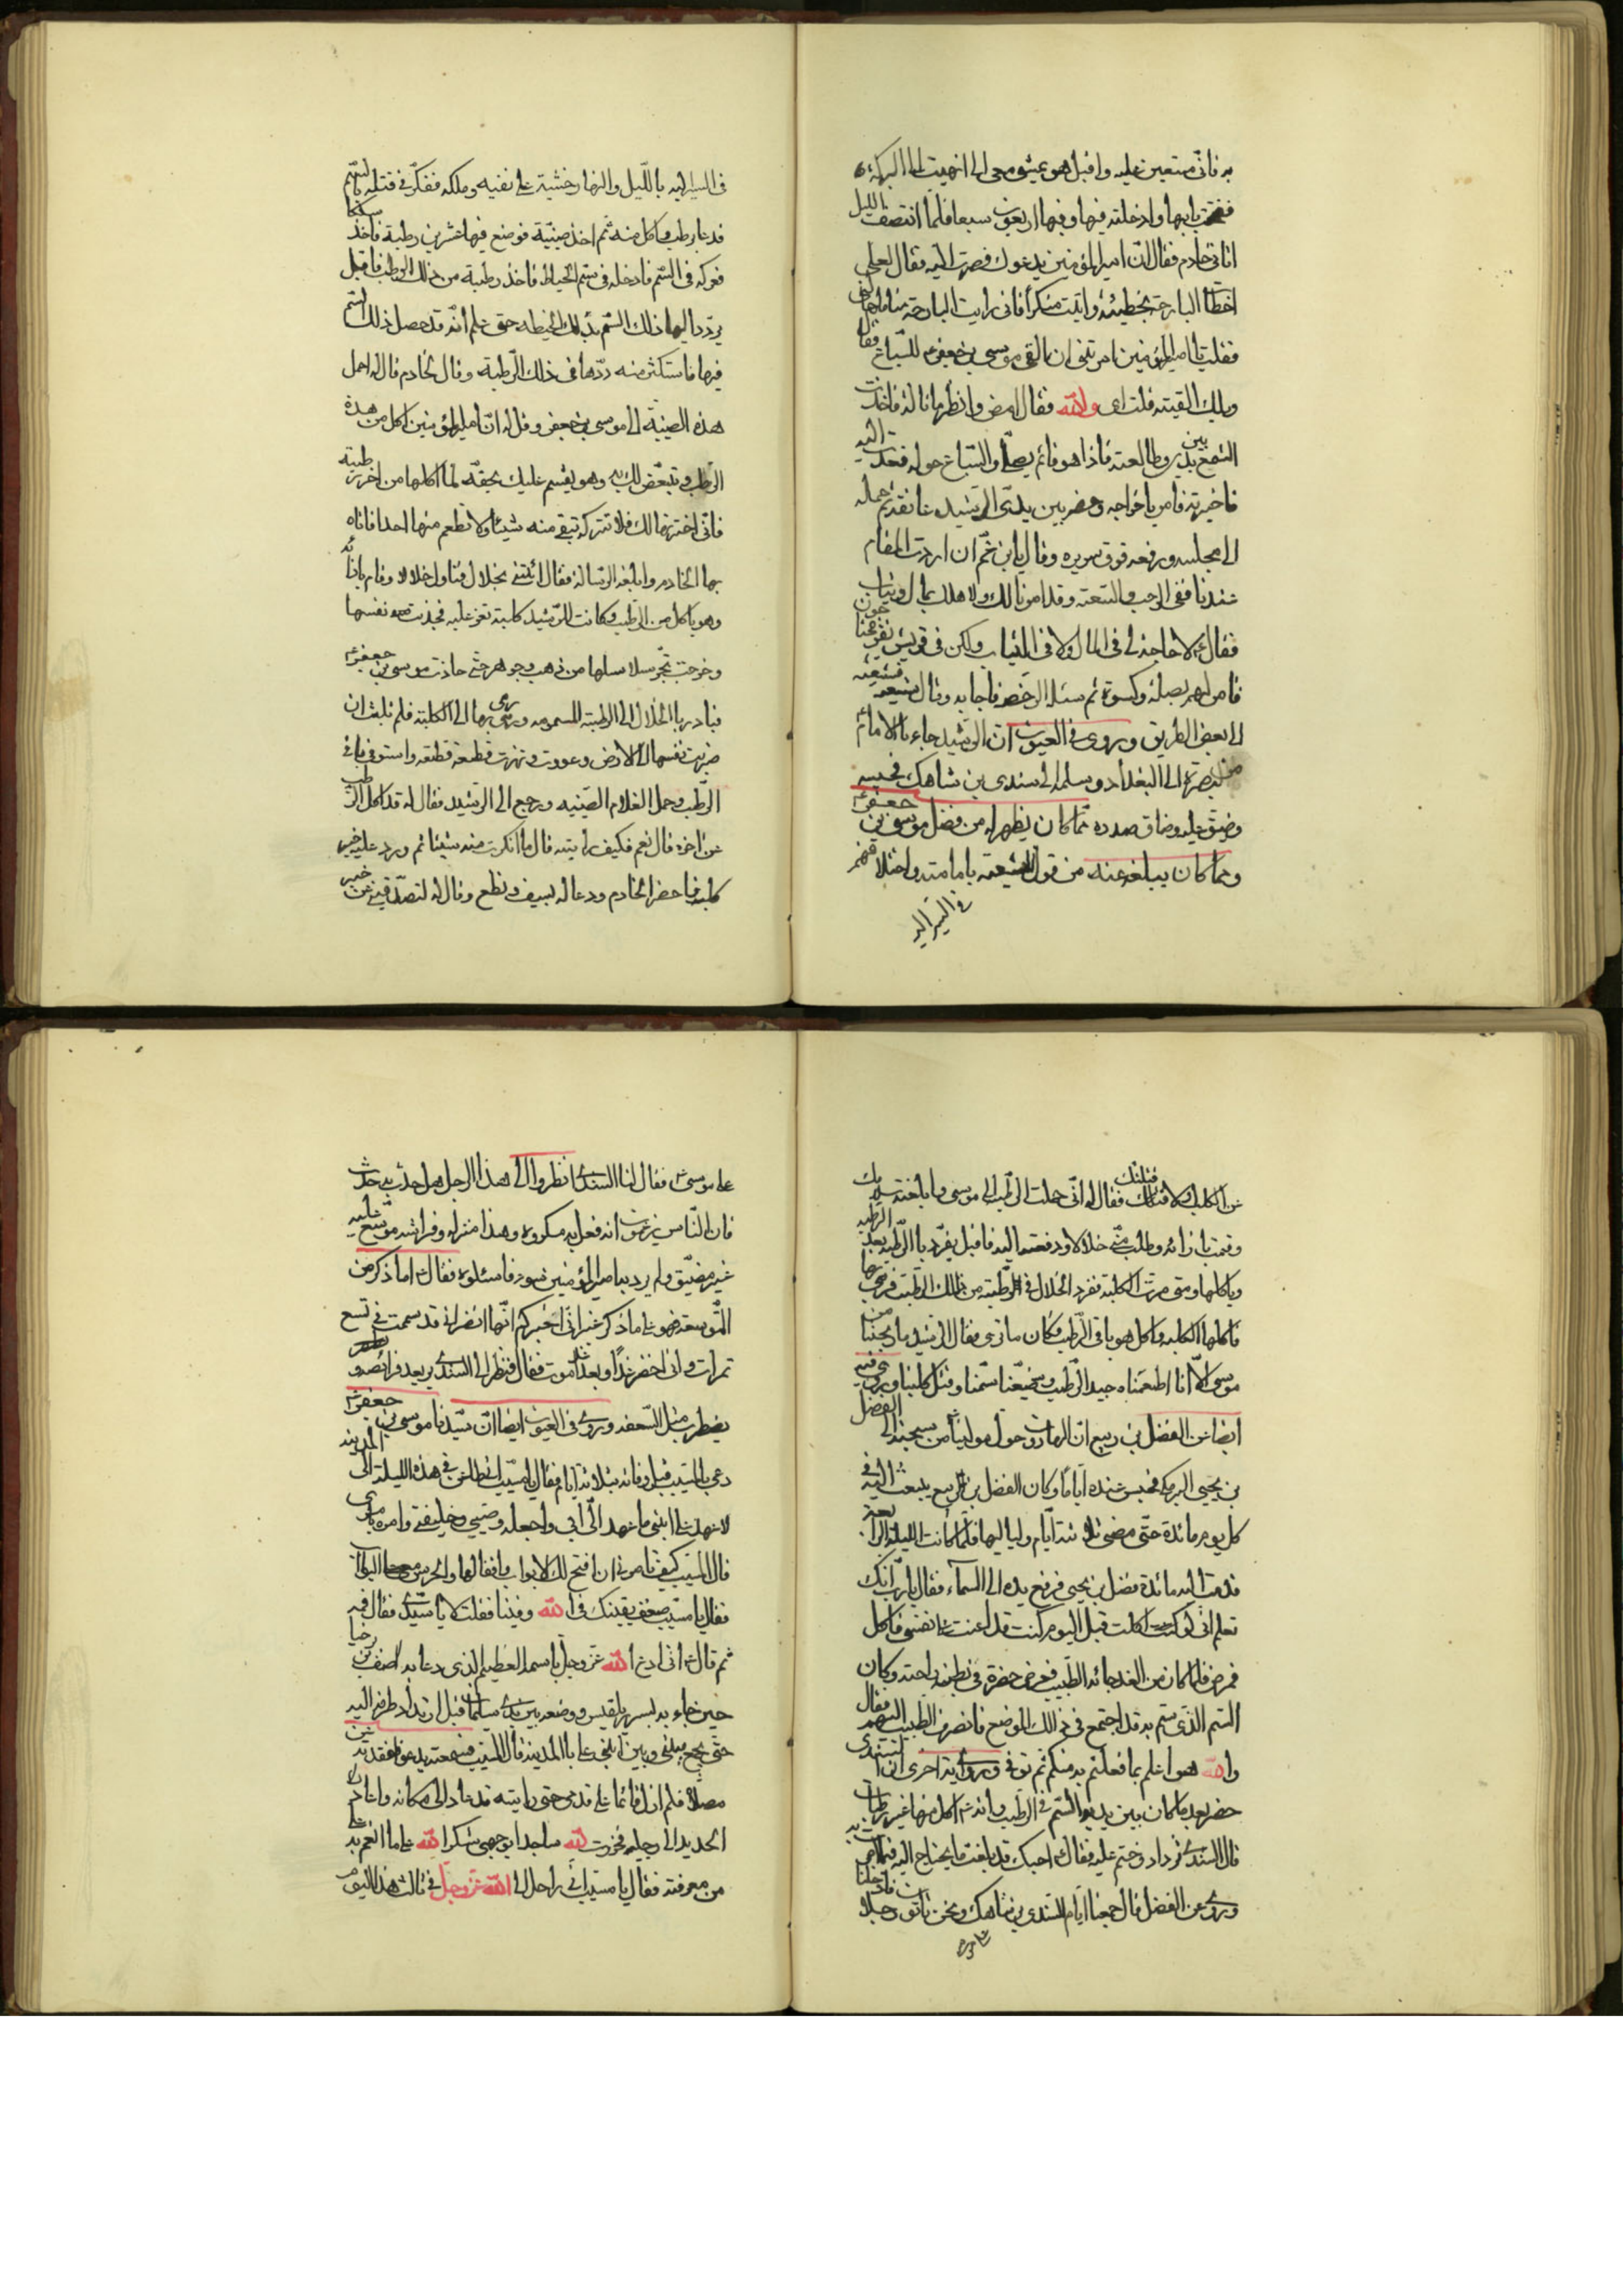 به فانّى مستعين عليه واقبل هو يمشى معى الى ان انتهيت الى البركة
ففتحت بابها وادخلته فيها وفيها اربعون سبعا فلما انتصف الليل
اتانى خادم فقال ان امير المؤمنين يدعوك فصرت اليه فقال لعلى
اخطأت البارحة بخطيئة واتيت منكرا فانى رايت البارحة مناما
فقلت يا امير المؤمنين امرتنى ان القى موسى بن جعفر للسباع فقال
ويلك القيته قلت اى والله فقال امض وانظر ما حاله فاخذت
الشمع بين يدى وطالعته فاذا هو قائم يصلّى والسباع حوله فعدت اليه
فاخبرته فامر باخراجه وحضر بين يدى الرشيد
الى مجلسه ورفعه فوق سريره وقال يا بن عم ان اردت المقام
عندنا ففى الرحب والسعة وقد امرنا لك ولاهلك بمال وثياب
فقال لا حاجة لى فى المال ولا فى الثياب ولكن فى قريش نفر
فامر لهم بصلة وكسوة ثم سئله الرخصه فاجابه وقال شيعه
الى بعض الطريق وروى فى العيون ان الرشيد جاء بالامام
من البصرة الى البغداد وسلمه الى سندى بن شاهك فحبسه
وضيق عليه وضاق صدره ممّا كان يظهر له من فضل موسى بن جعفر
وما كان يبلغه عنه من قول الشيعة بامامته واختلافهم
فى السر اليه
فى السر اليه بالليل والنهار خشيته على نفسه وملكه ففكّر فى قتله بالسّم
فدعا برطب واكل منه ثم اخذ صينيّة فوضع فيها عشرين رطبة فاخذ سلكا
فعركه فى السّم فادخله فى سّم الخياط فاخذ رطبة من ذلك الرطب فاقبل
يردد اليها ذلك السّم بذلك الخيط حتى علم انّه قد حصل ذلك السّم
فيها فاستكثر منه ردّها فى ذلك الرّطبة وقال لخادم قال له احمل
هذه الصينيّة الى موسى بن جعفر وقل له انّ امير المؤمنين اكل من هذه
الرّطب وتبعّض لك به وهو يقسم عليك بحقّه لما اكلتها من اخر رطبة
فانّى اخترتها لك فلا تتركه تبقى منه شيئا ولا تطعم منها احدا فاتاه
بها الخادم وابلغه الرسالة فقال ائتنى بخلال فناوله خلالا وقام بازائه
وهو ياكل من الرّطب وكانت للرّشيد كلبة تعز عليه فجذبت نفسها
وخرجت تجرّ سلاسلها من ذهب وجوهر حتى حاذت موسى بن جعفر
فبادر بالخلال الى الرطبة المسمومه ورمى بها الى الكلبة فلم تلبث ان
ضربت نفسها الى الارض وعوت وتهرت قطعة قطعة واستوفى باقى
الرّطب وحمل الغلام الصّينيه ورجع الى الرشيد فقال له قد اكل الرّطب
عن اخره قال نعم فكيف رايته قال ما انكرت منه شيئا ثم ورد عليه خبر
كلبته فاحضر الخادم ودعا له بسيف ونطع وقال له لتصدّقنى عن خبر
عن الكلب والا قتلتك فقال له انّى حملت الرّطب الى موسى وابلغته سلامك
وقمت بازائه وطلب منّى خلالا ودفعته اليه فاقبل يغرّد بالرّطبة بعد الرّطبة
وياكلها ومتى مرت الكلبة فغرد الخلال فى الرّطبة من ذلك الرّطب فرمى بها
فاكلتها الكلبة واكل هو باقى الرّطب وكان ما ترى فقال الرشيد ما ربحنا من
موسى الّا انا اطعمناه جيد الرّطب وضيّعنا سمّنا وقتل كلبنا وروى فيه
ايضا عن الفضل بن ربيع ان الهارون حول مولينا من سجنه الى الفضل
بن يحيى البرمكى فحبس عنده ايّاما وكان الفضل بن ربيع يبعث اليه فى
كل يوم مائدة حتّى مضى ثلاثة ايّام ولياليها فلمّا كانت الليلة الرابعة
قدمت اليه مائدة فضل بن يحيى فرفع يده الى السماء فقال يا رب انّك
تعلم انّى لو كنت اكلت قبل اليوم كنت قد اعنت على نفسى فاكل
فمرض فلمّا كان من الغد جائه الطّبيب فعرض خضرة فى بطن راحته وكان
السّم الّذى سّم به قد اجتمع فى ذلك الموضع فانصرف الطبيب اليهم فقال
والله هو اعلم بما فعلتم به منكم ثم توفى وروى رواية اخرى ان السّندى
حضر بعد ما كان بين يديه السّم فى الرّطب وانه اكل منها عشر رطبات
قال السّندى تزداد فقال حسبك قد بلغت ما يحتاج اليه
وروى عن الفضل قال جمعنا ايّام السّندى بن شاهك ونحن ثمانون رجلا فادخلنا
على موسى
على موسى فقال لنا السندى انظروا الى هذا الرجل هل حدث به حدث
فان النّاس يزعمون انه فعل به مكروه وهذا منزله وفراشه موسّع عليه
غير مضيّق ولم يرد به امير المؤمنين سوء فاسئلوه فقال اما ذكر من
التّوسعة فهو على ما ذكر غير انّى اخبركم ايّها النفر انى قد سممت فى تسع
تمرات وانى اخضر غدا وبعد غد اموت فقال فنظر الى السندى يرتعد فرائصه و
يضطرب مثل السّعفه وروى فى العيون ايضا انّ سيّدنا موسى بن جعفر
دعى بالمسيّب قبل وفاته بثلاثة ايام فقال يا مسيّب انى ظاعن فى هذه الليلة الى المدينه
لاعهد على ابنى ما عهد الىّ ابى واجعله وصيى وخليفتى وامره بامرى
قال المسيّب كيف تامرنى ان افتح لك الابواب واقفالها والحرس معى على الابواب
فقال يا مسيّب ضعف يقينك فى الله وفينا فقلت لا يا سيّدى فقال فمه
ثم قال انى ادعو الله عز وجل باسمه العظيم الذى دعا به اصف بن برخيا
حين جاء به بسرير بلقيس ووضعه بين يدى سليمان قبل ارتداد طرف اليه
حتّى يجمع بينى وبين ابنى على بالمدينة قال المسيّب فسمعته يدعو ففقدته عن
مصلاه فلم ازل قائما على قدمى حتى رايته قد عاد الى مكانه واعاد
الحديد الى رجليه فخررت لله ساجدا بوجهى شكرا لله على ما انعم به علىّ
من معرفته فقال يا مسيّب انّى راحل الى الله عز وجل فى ثالث هذا اليوم